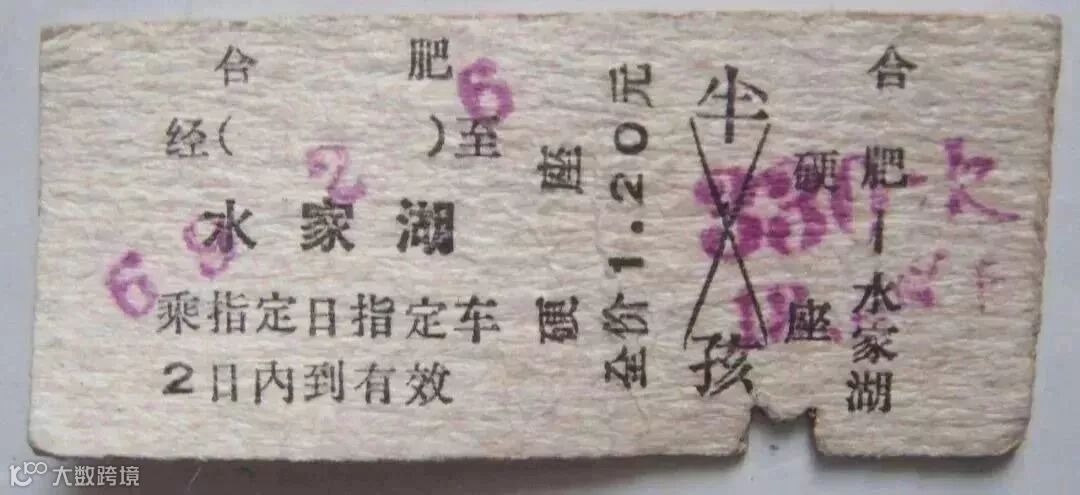 合 肥
经( )至
水家湖
乘指定日指定车
2日内到有效
硬 座
全价1.20元
半
孩
硬座
合肥—水家湖
6
2
6 9
大数跨境